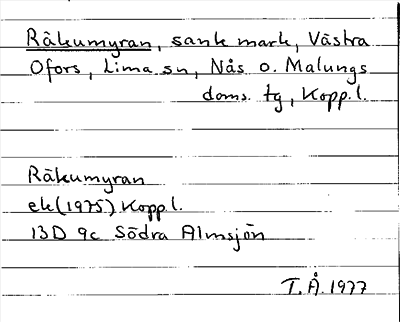 Räkumyran, sank mark, Västra
Ofors, Lima sn, Nås o. Malungs
doms. tg, Kopp.l.
Räkumyran
ek(1975) Kopp.l.
13D 9c Södra Almsjön
T.Å.1977